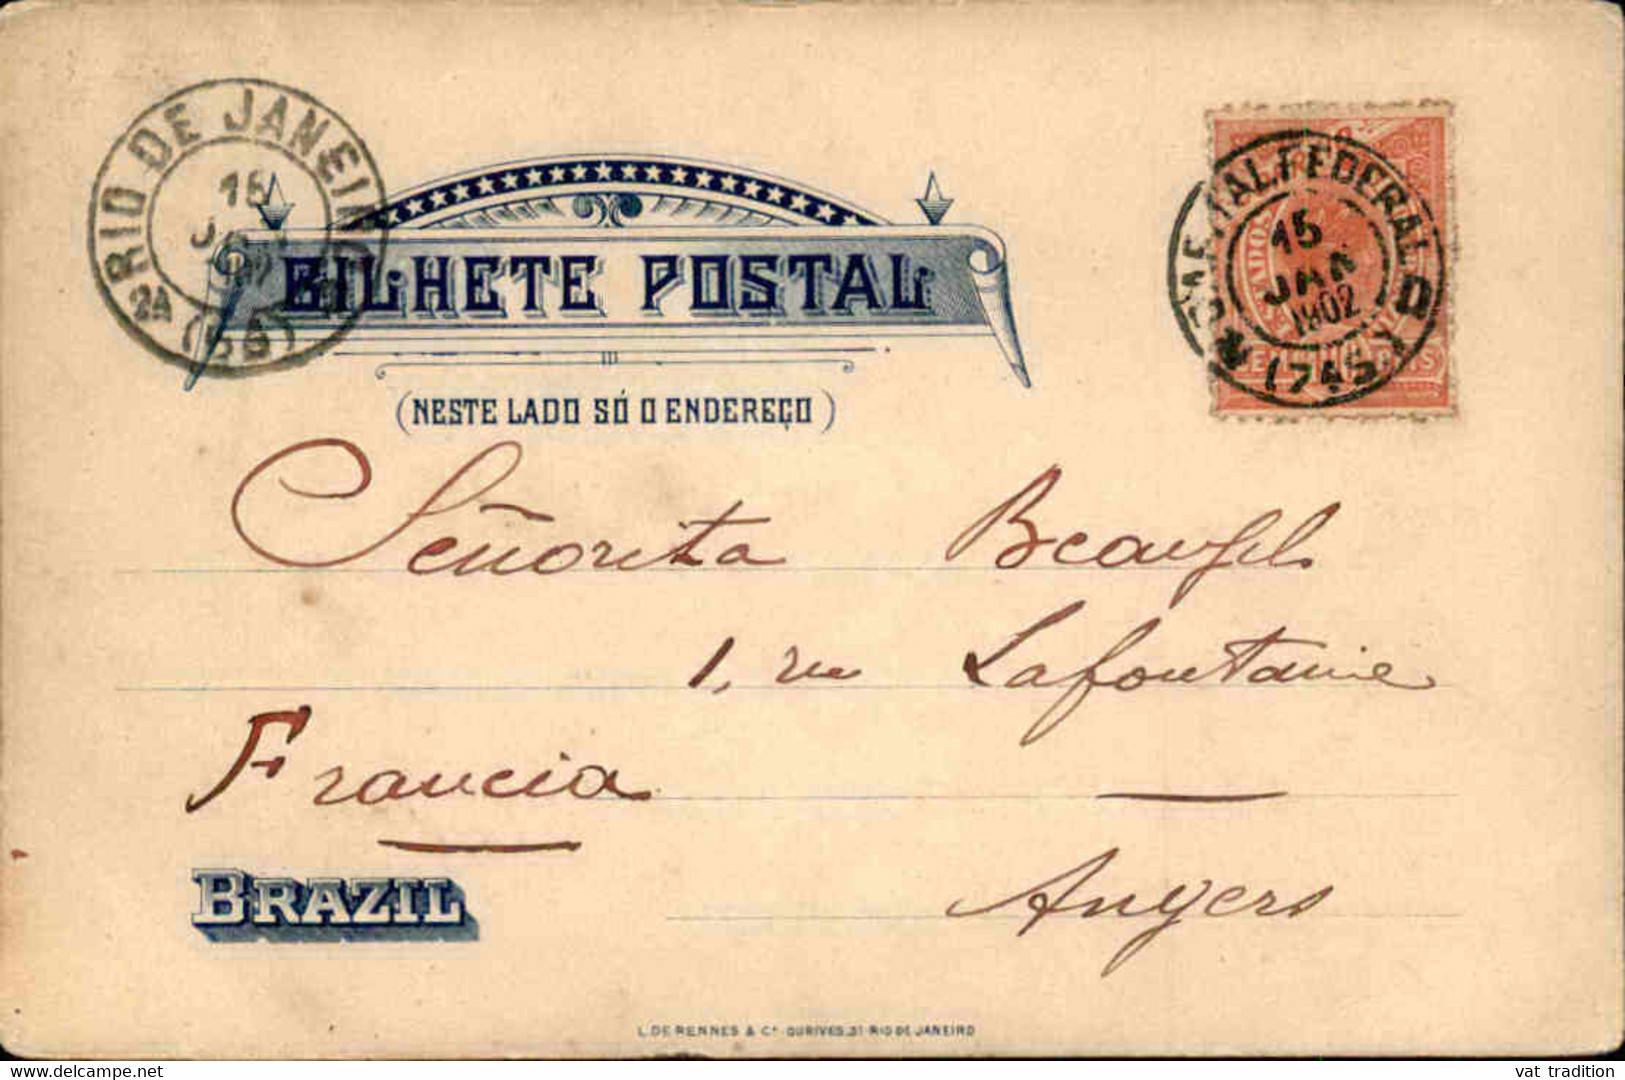 RIO DE JANEIRO
15
(5A)
2A
CAPITAL FEDERAL
15
JAN
1902
BILHETE POSTAL
(NESTE LADO SÓ O ENDEREÇO)
Señorita
1, rue Lafontaine
Francia
BRAZIL
Angers
L. DE RENNES & Cª OURIVES, 31 RIO DE JANEIRO
vat tradition